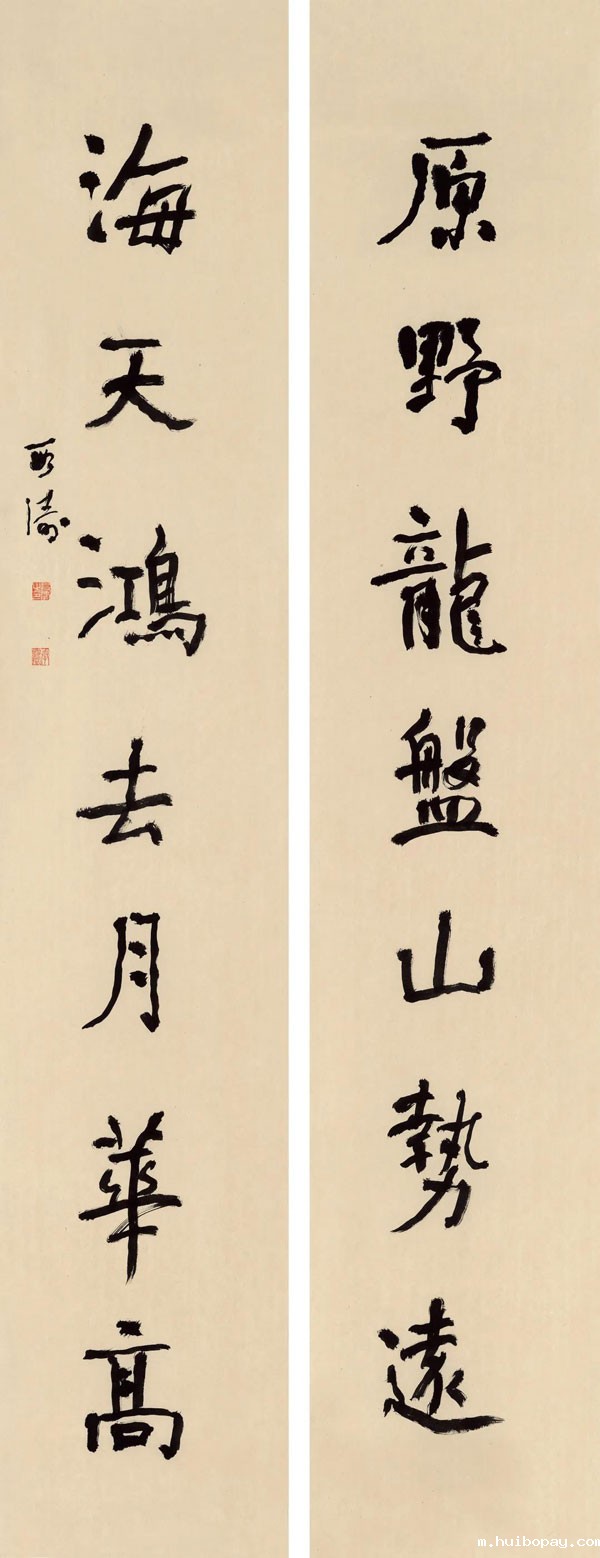 原野龍盤山勢遠
海天鴻去月華高
m.huibopay.com